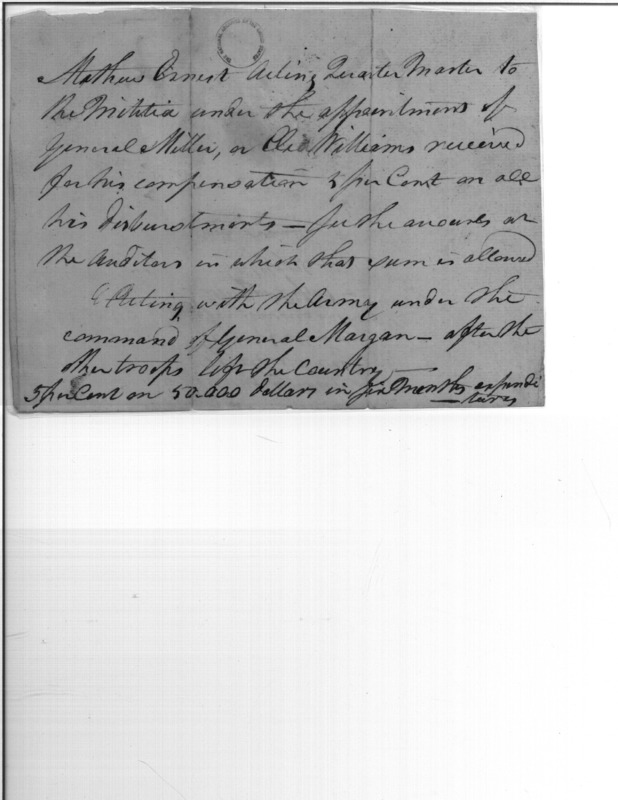 Mathew Ernest Acting Quarter Master to
the Militia under the appointment of
General Miller, or Cleo Williams received
for his compensation 5 per Cent on all
his disburstments — see the accounts at
the Auditors in which that sum is allowed
Acting with the Army under the
command of General Morgan — after the
other troops left the Country —
5 per Cent on 50.000 dollars in six Months expendi
tures